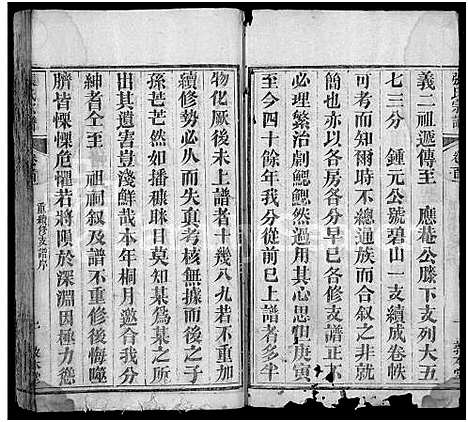 張氏宗譜
卷首
義二祖遞傳至　應菴公滕下支列大五
七三分　鍾元公號碧山一支續成卷帙
時而知爾時不總通族而合叙之非就
簡也亦以各房各分支各修支譜正不
必理繁治劇鰓鰓然過用其心思但庚寅
至今四十餘年我分從前巳上譜者多半
物化厥後未上譜者十幾八九若不重加
續修勢必人而失真考核無據而後之子
孫芒芒然如播糠眯目莫知某爲某之所
出其遺害豈淺鮮哉本年桐月邀合我分
紳耆仝至　祖祠叙及譜不重修後悔噬
臍皆慄慄危懼若將隕於深淵因極力慫
重續修支譜序
七